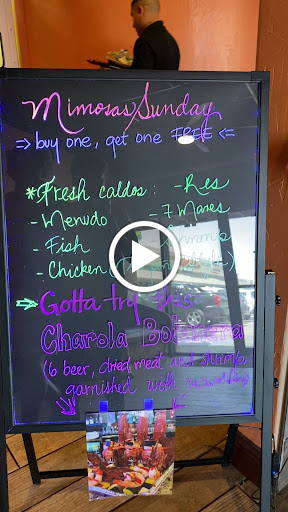 Mimosas Sunday
=> buy one, get one FREE <=
*Fresh caldos: - Res
- Menudo - 7 Mares
- Fish
- Chicken
Gotta try this:
Charola Botanera
(6 beer, dried meat and shrimp
garnished with